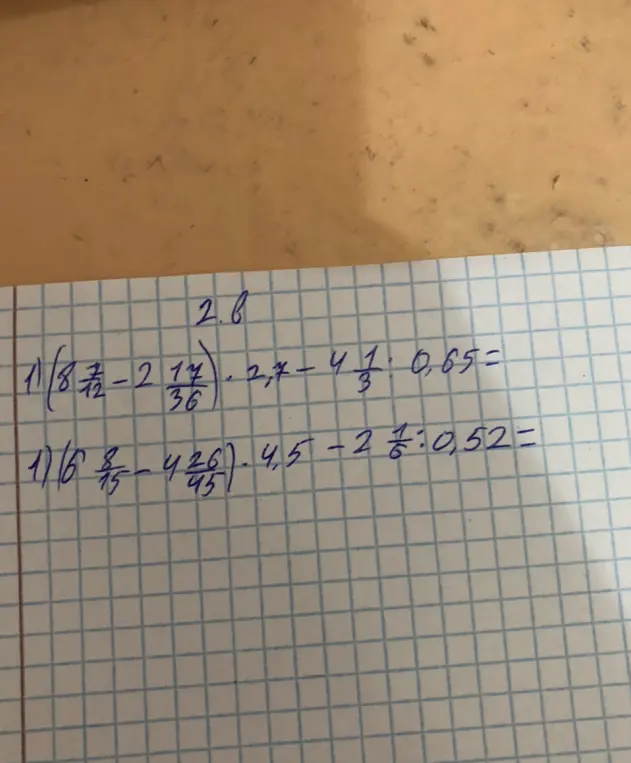 2.в
1) (8 7/12 - 2 17/36) · 2,7 - 4 1/3 : 0,65 =
1) (6 8/15 - 4 26/45) · 4,5 - 2 1/6 : 0,52 =